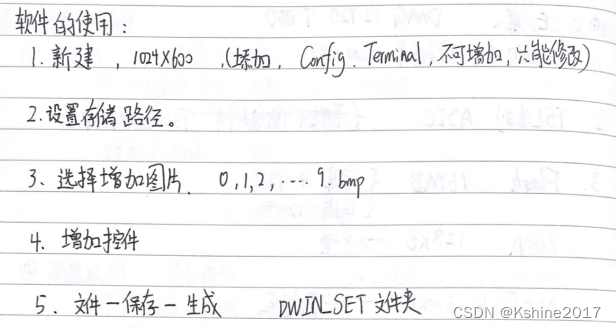 软件的使用：
1. 新建，1024×600 .(添加，Config. Terminal,不可增加,只能修改)
2.设置存储路径。
3、选择增加图片、0,1,2,....9.bmp
4、增加控件
5、文件－保存－生成 DWIN_SET 文件夹
CSDN @Kshine2017